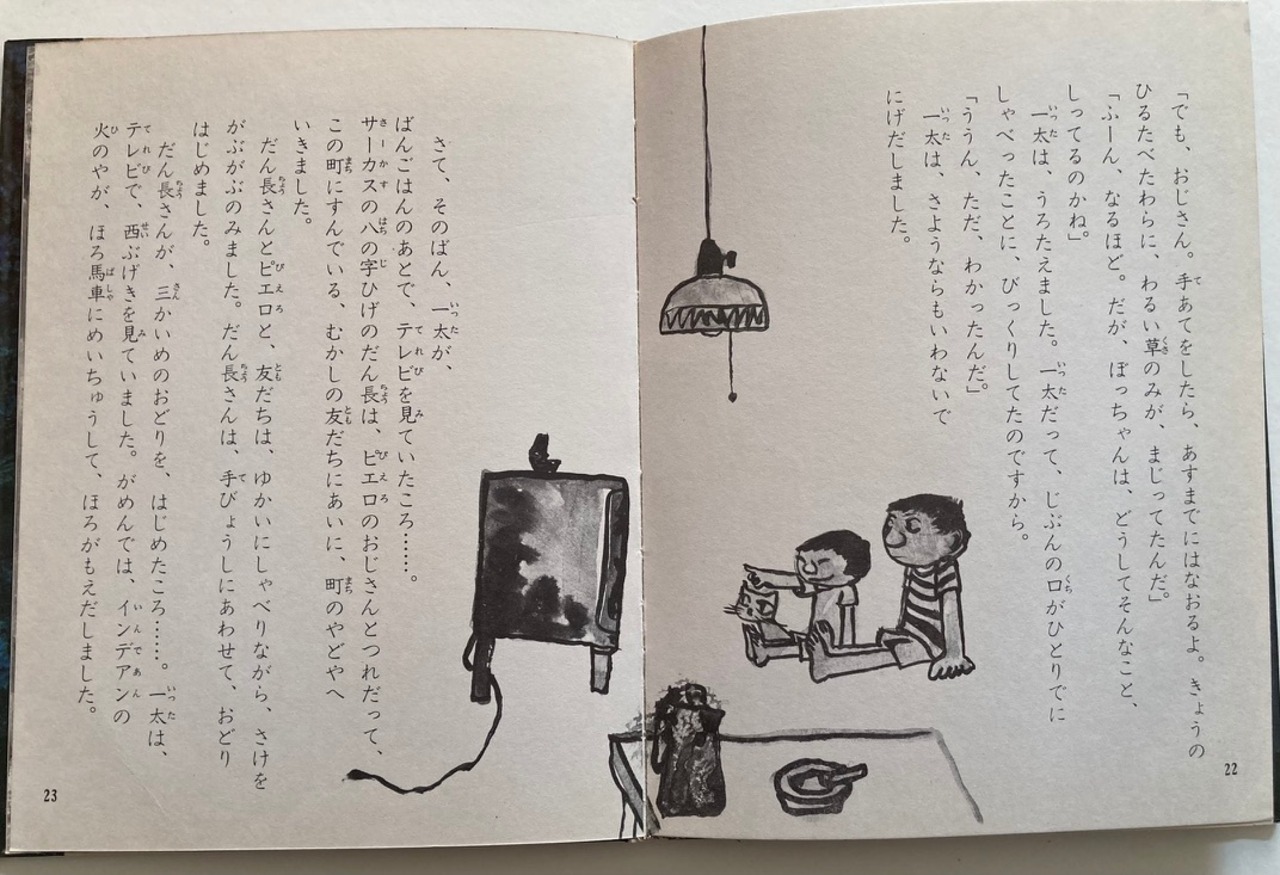 「でも、おじさん。手あてをしたら、あすまでにはなおるよ。きょうの
ひるたべたわらに、わるい草のみが、まじってたんだ。」
「ふーん、なるほど。だが、ぼっちゃんは、どうしてそんなこと、
しってるのかね。」
一太は、うろたえました。一太だって、じぶんの口がひとりでに
しゃべったことに、びっくりしてたのですから。
「ううん、ただ、わかったんだ。」
一太は、さようならもいわないで
にげだしました。
22
さて、そのばん、一太が、
ばんごはんのあとで、テレビを見ていたころ……。
サーカスの八の字ひげのだん長は、ピエロのおじさんとつれだって、
この町にすんでいる、むかしの友だちにあいに、町のやどやへ
いきました。
だん長さんとピエロと、友だちは、ゆかいにしゃべりながら、さけを
がぶがぶのみました。だん長さんは、手びょうしにあわせて、おどり
はじめました。
だん長さんが、三かいめのおどりを、はじめたころ……。一太は、
テレビで、西ぶげきを見ていました。がめんでは、インデアンの
火のやが、ほろ馬車にめいちゅうして、ほろがもえだしました。
23